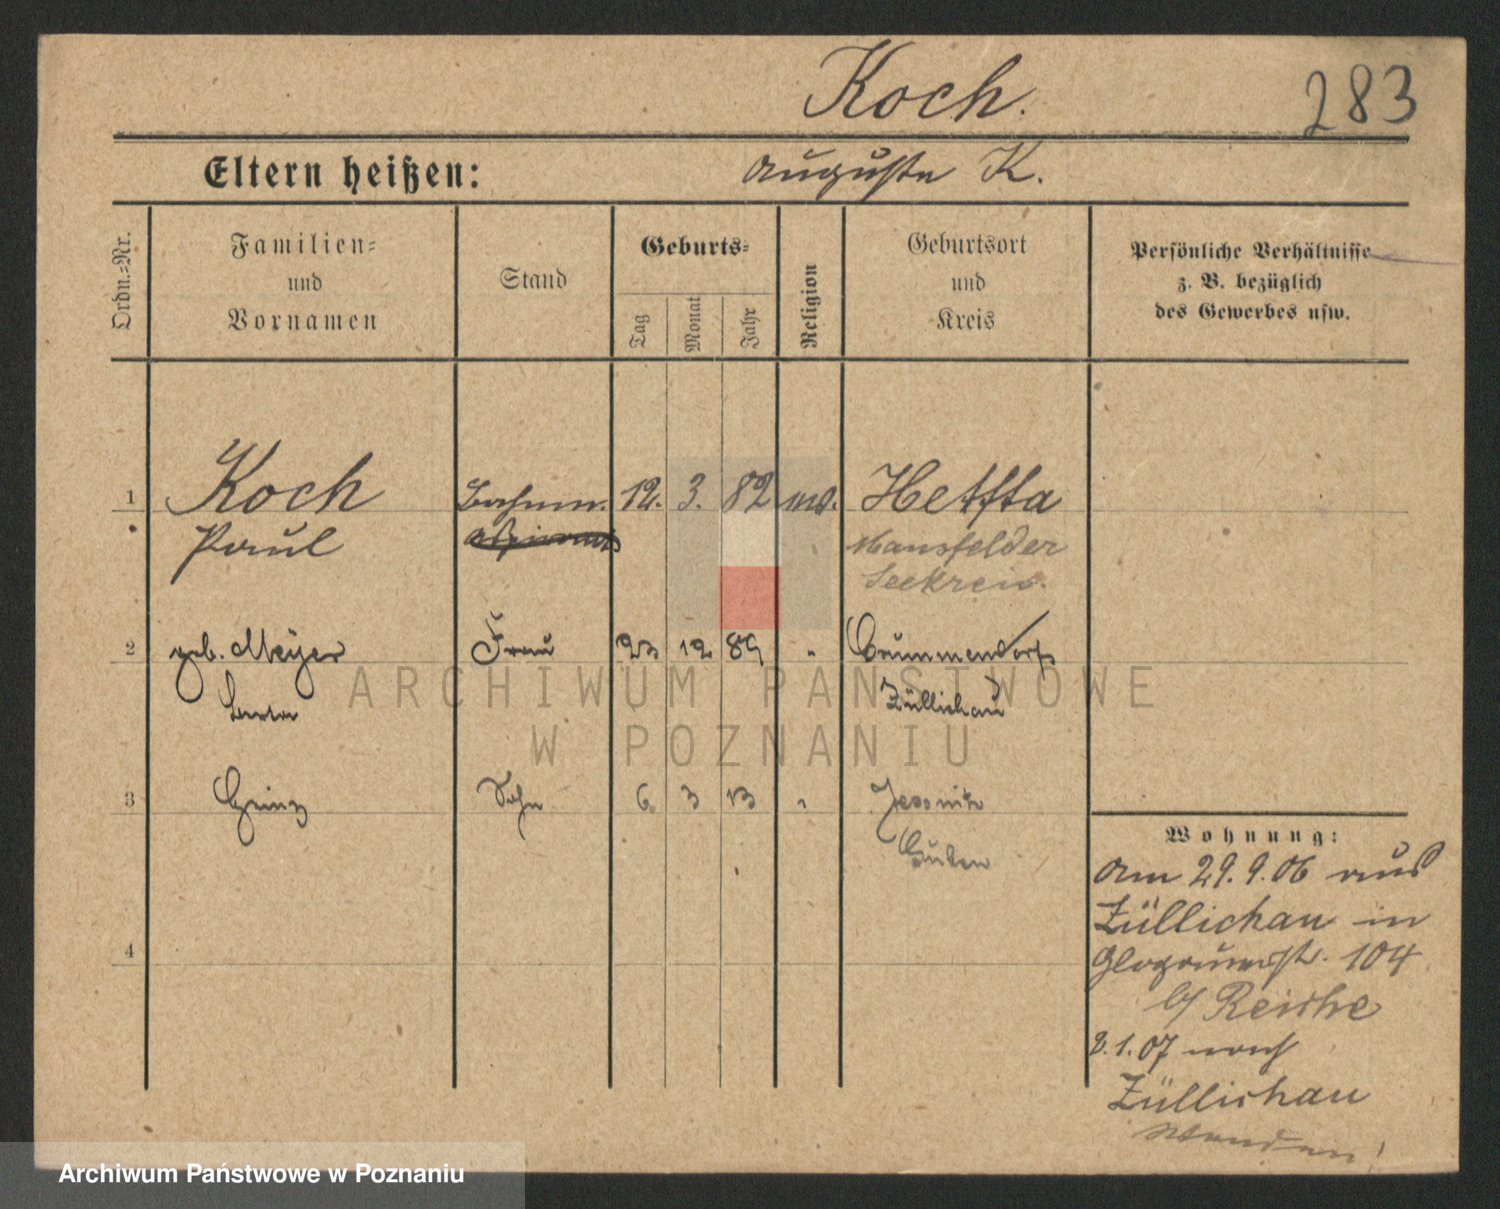 Koch.
283
Eltern heißen: Auguste K.
Ordn.-Nr.
Familien-
und
Vornamen
Stand
Geburts-
Tag
Monat
Jahr
Religion
Geburtsort
und
Kreis
Persönliche Verhältnisse
z. B. bezüglich
des Gewerbes usw.
1 Koch 12. 3. 82 Hettsta
Paul Mansfelder
Seekreis.
2 geb. Meyer Frau 23 12 89 " Krummendorf
Züllichau
3 Heinz Sohn 6 3 13 " Jessnitz
Guben
Wohnung:
am 29.9.06 aus
Züllichau in
Glogauerstr. 104
b/ Reiche
8.1.07 nach
Züllichau
Wenden!
4
ARCHIWUM PAŃSTWOWE
W POZNANIU
Archiwum Państwowe w Poznaniu